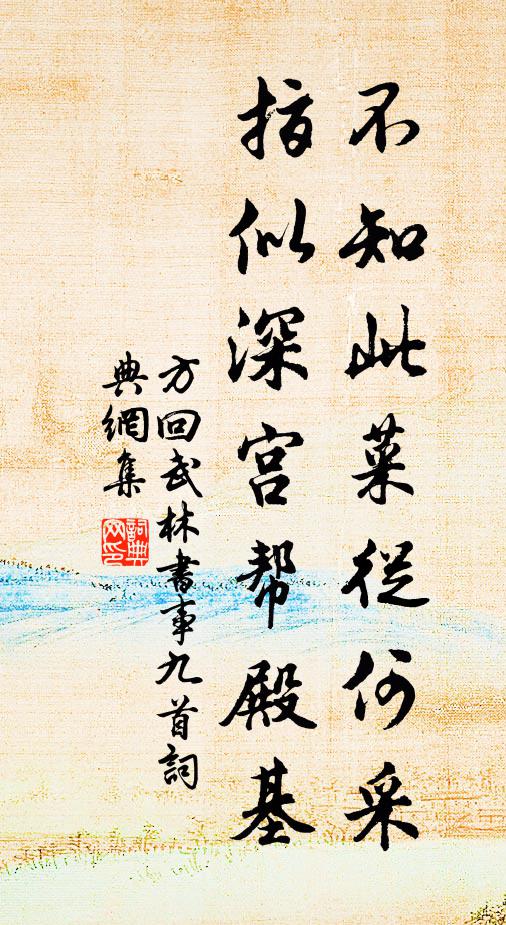 不知此菜從何采
指似深宮帮殿基
方回武林書事九首詞
典網集
詞典網印